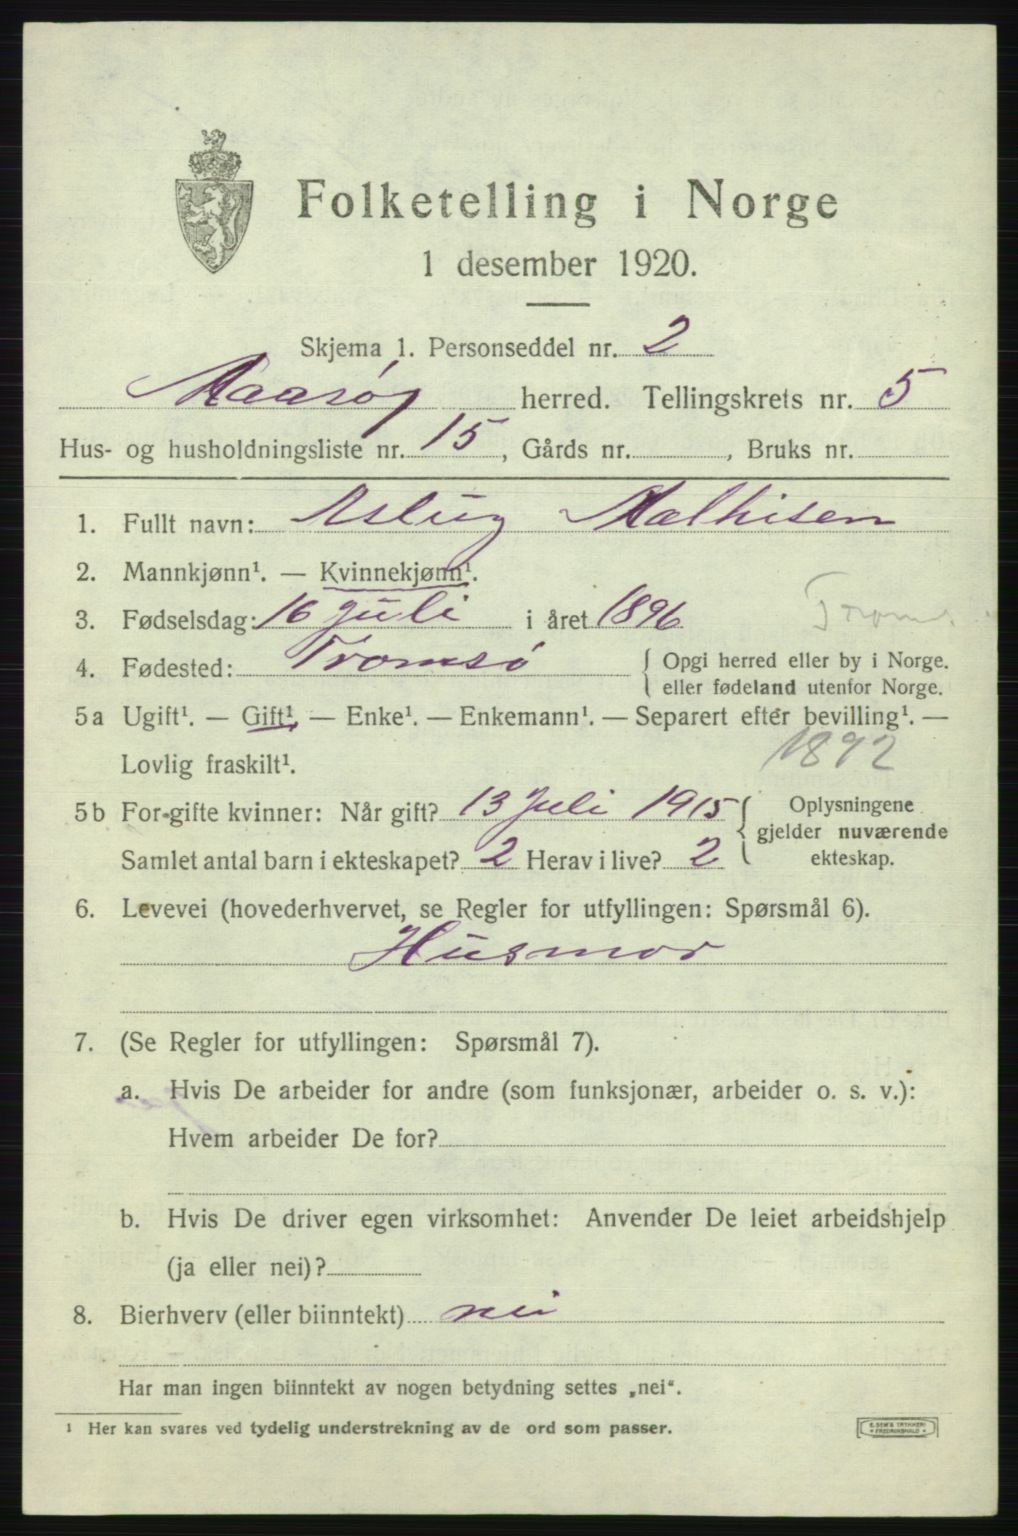 Folketelling i Norge
1 desember 1920.
Skjema 1. Personseddel nr. 2
Maasøy herred. Tellingskrets nr. 5
Hus- og husholdningsliste nr. 15, Gårds nr. , Bruks nr.
1. Fullt navn: Aslug Mathisen
2. Mannkjønn¹. — Kvinnekjønn¹.
3. Fødselsdag: 16 juli i året 1896 Troms.
4. Fødested: Tromsø { Opgi herred eller by i Norge.
eller fødeland utenfor Norge.
5a Ugift¹. — Gift¹. — Enke¹. — Enkemann¹. — Separert efter bevilling¹. —
Lovlig fraskilt¹. 1892
5b For gifte kvinner: Når gift? 13 juli 1915 { Oplysningene
gjelder nuværende
Samlet antal barn i ekteskapet? 2 Herav i live? 2 ekteskap.
6. Levevei (hovederhvervet, se Regler for utfyllingen: Spørsmål 6).
Husmor
7. (Se Regler for utfyllingen: Spørsmål 7).
a. Hvis De arbeider for andre (som funksjonær, arbeider o. s. v.):
Hvem arbeider De for?
b. Hvis De driver egen virksomhet: Anvender De leiet arbeidshjelp
(ja eller nei)?
8. Bierhverv (eller biinntekt) nei
Har man ingen biinntekt av nogen betydning settes „nei“.
¹ Her kan svares ved tydelig understrekning av de ord som passer.
E. SEM'S TRYKKERI
FREDRIKSHALD